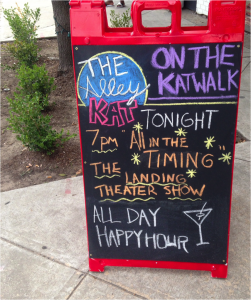 THE Alley KAT
ON THE KATWALK
TONIGHT
7pm "ALL IN THE TIMING"
THE LANDING THEATER SHOW
ALL DAY
HAPPY HOUR